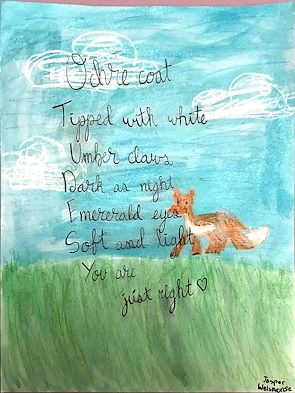 Ochre coat
Tipped with white
Umber claws
Dark as night
Emererald eyes
Soft and light
You are
just right ♡
Jasper